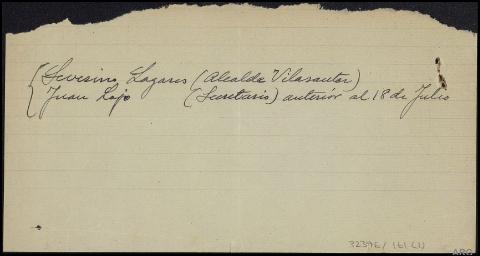 Severino Lagares (Alcalde Vilasantar)
Juan Lojo (Secretario) anterior al 18 de Julio
32396/161(1)
ARG